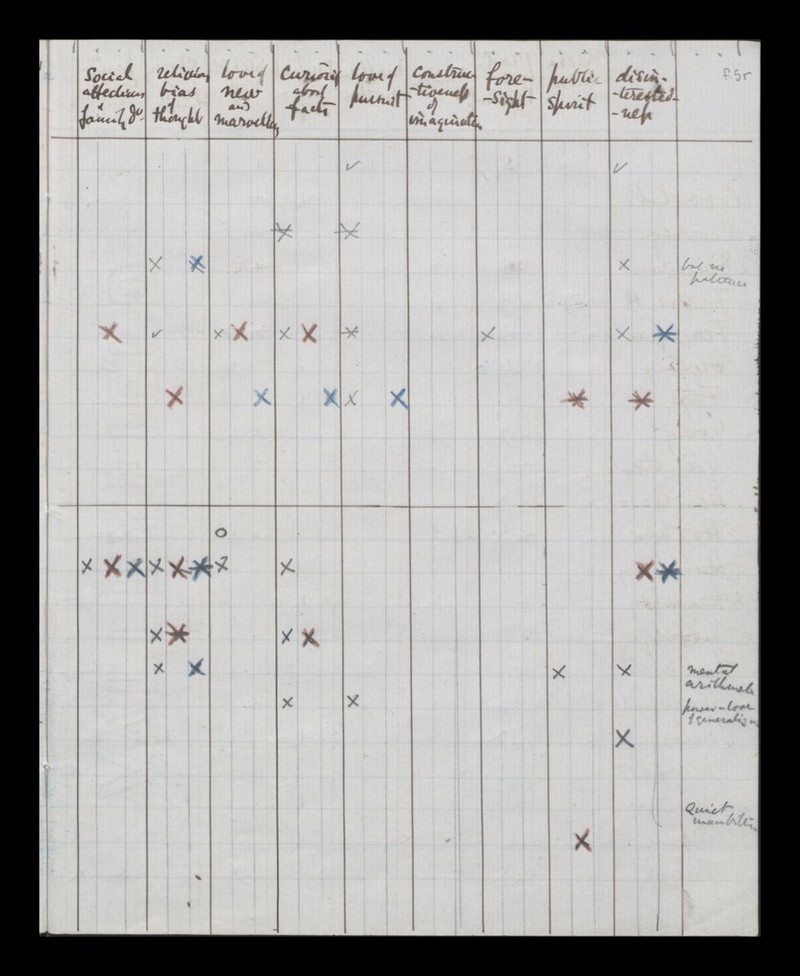 Social
affections
&
family do.
religious
bias
of
thought
love of
new
and
marvellous
Curiosity
about
facts
love of
pursuit
Construc-
-tiveness
of
imagination
fore-
-sight
public
spirit
disin-
-terested-
-ness
f.5r
but no
patience
mental
arithmetic
power - love
of generalizin
Quiet